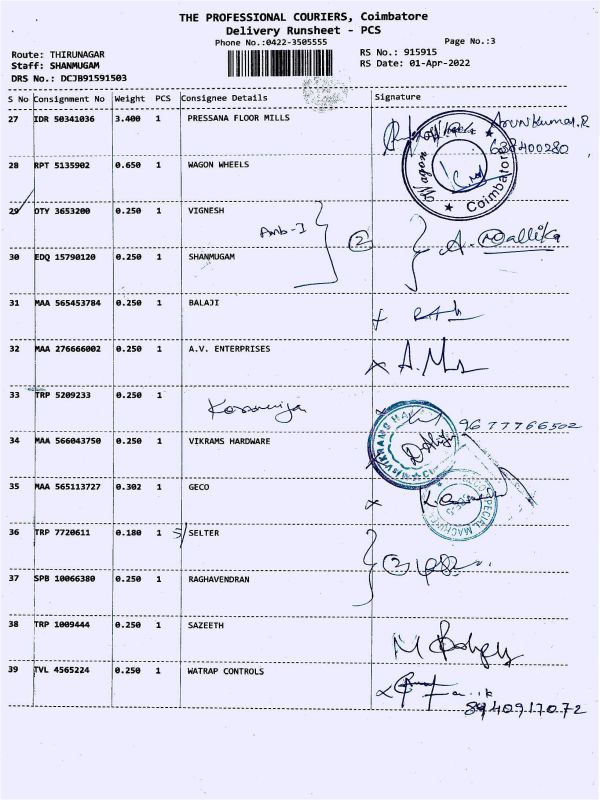 THE PROFESSIONAL COURIERS, Coimbatore
Delivery Runsheet - PCS
Phone No.:0422-3505555
Page No.:3
Route: THIRUNAGAR
RS No.: 915915
Staff: SHANMUGAM
RS Date: 01-Apr-2022
DRS No.: DCJB91591503
S No Consignment No Weight PCS Consignee Details Signature
27 IDR 50341036 3.400 1 PRESSANA FLOOR MILLS ArunKumar.R
28 RPT 5135902 0.650 1 WAGON WHEELS
Wagon Wheels
Coimbatore
29 OTY 3653200 0.250 1 VIGNESH
Amb-I 2 A. Mallika
30 EDQ 15790120 0.250 1 SHANMUGAM
31 MAA 565453784 0.250 1 BALAJI
32 MAA 276666002 0.250 1 A.V. ENTERPRISES
33 TRP 5209233 0.250 1
9677766502
34 MAA 566043750 0.250 1 VIKRAMS HARDWARE
VIKRAMS
35 MAA 565113727 0.302 1 GECO
SPECIAL MACHINES
36 TRP 7720611 0.180 1 SELTER
2
37 SPB 10066380 0.250 1 RAGHAVENDRAN
38 TRP 1009444 0.250 1 SAZEETH
39 TVL 4565224 0.250 1 WATRAP CONTROLS
8940917072